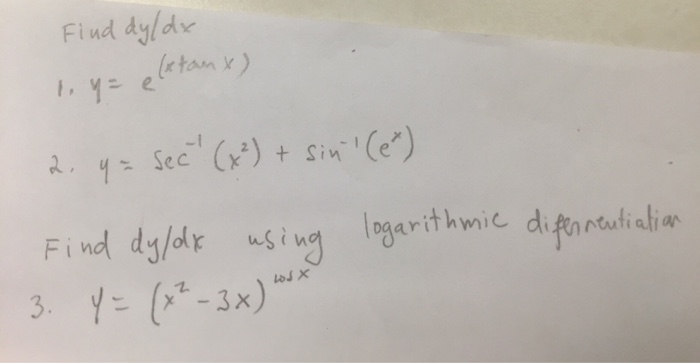 Find dy/dx
1. y = e^(x tan x)
2. y = sec⁻¹(x²) + sin⁻¹(eˣ)
Find dy/dx using logarithmic diferrentiation
3. y = (x² - 3x)^cos x